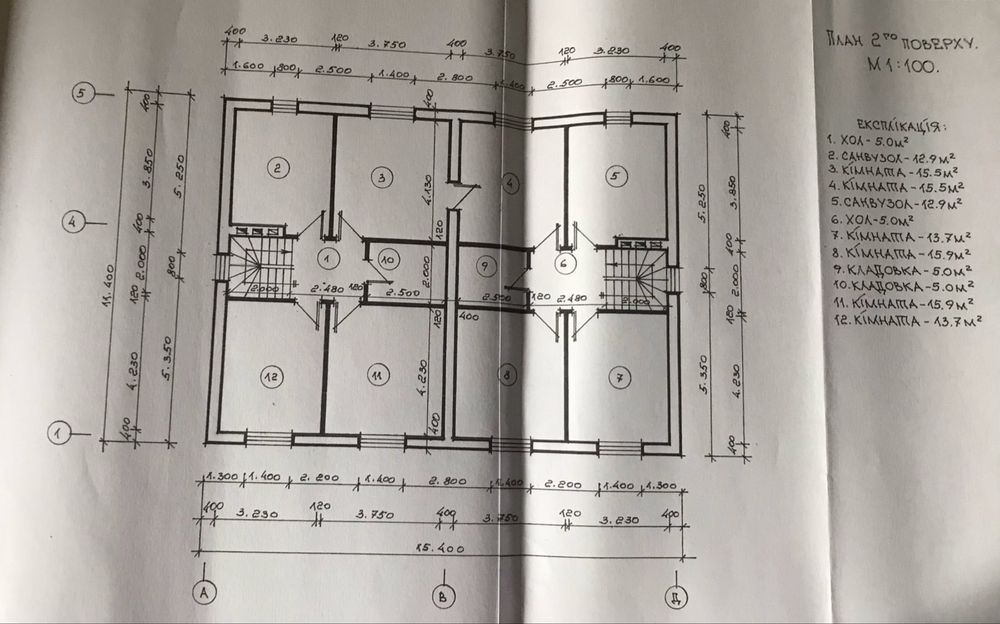 ПЛАН 2ГО ПОВЕРХУ.
М 1:100.
ЕКСПЛІКАЦІЯ:
1. ХОЛ - 5.0 м²
2. САНВУЗОЛ - 12.9 м²
3. КІМНАТА - 15.5 м²
4. КІМНАТА - 15.5 м²
5. САНВУЗОЛ - 12.9 м²
6. ХОЛ - 5.0 м²
7. КІМНАТА - 13.7 м²
8. КІМНАТА - 15.9 м²
9. КЛАДОВКА - 5.0 м²
10. КЛАДОВКА - 5.0 м²
11. КІМНАТА - 15.9 м²
12. КІМНАТА - 13.7 м²
400 3.230 120 3.750 400 3.750 120 3.230 400
1.600 800 2.500 1.400 2.800 1.400 2.500 800 1.600
5
4
1
11.400
400 3.850 400 2.000 120 4.230 400
5.250 800 5.350
2 3 4 5
1 10 9 6
12 11 8 7
400 4.130 120 2.000 120 4.230 400
2.000 2.480 120 2.500 2.500 120 2.480 2.000
400
5.250 800 5.350
400 3.850 400 2.000 120 4.230 400
1.300 1.400 2.200 1.400 2.800 1.400 2.200 1.400 1.300
400 3.230 120 3.750 400 3.750 120 3.230 400
15.400
А В Д